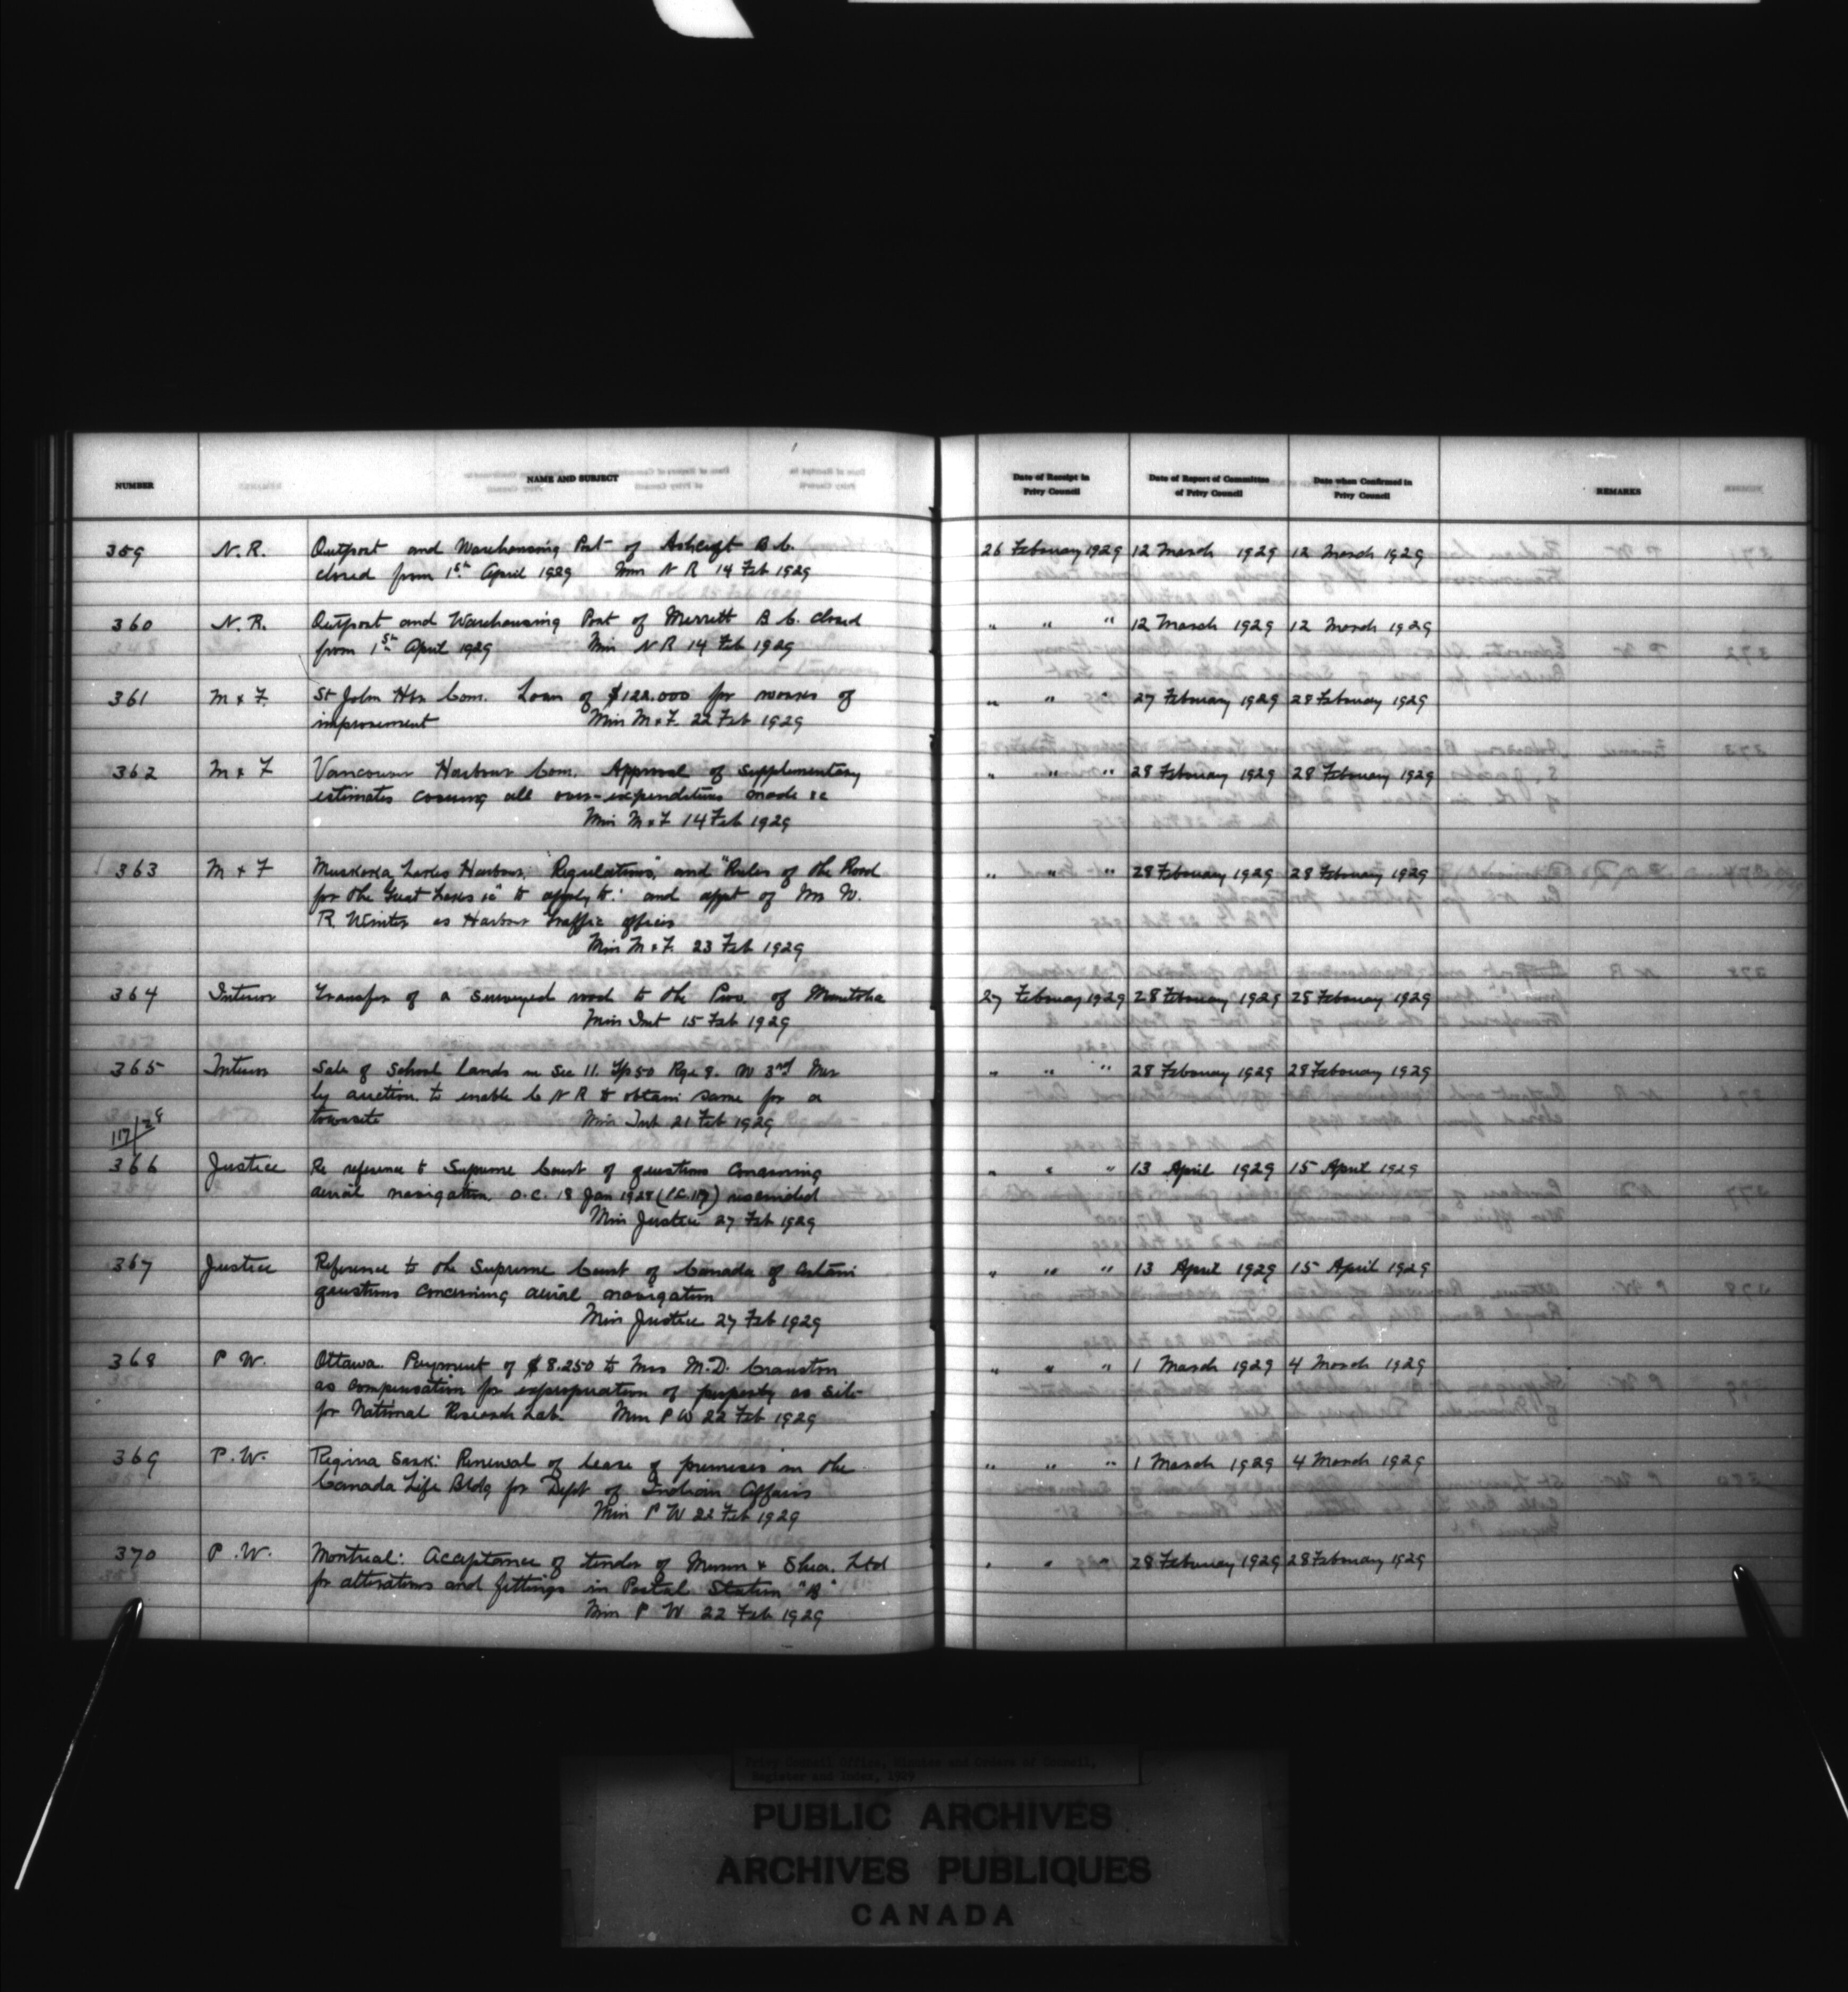 NUMBER NAME AND SUBJECT Date of Receipt in Privy Council Date of Report of Committee of Privy Council Date when Confirmed in Privy Council REMARKS
359 N.R. Outport and Warehousing Port of Ashcroft B.C. 26 February 1929 12 March 1929 12 March 1929
closed from 1st April 1929 Min N R 14 Feb 1929
360 N.R. Outport and Warehousing Port of Merritt B.C. closed " " " 12 March 1929 12 March 1929
from 1st April 1929 Min N R 14 Feb 1929
361 M & F. St John Hbr Com. Loan of $122.000 for works of " " " 27 February 1929 28 February 1929
improvement Min M & F. 22 Feb 1929
362 M & F Vancouver Harbour Com. Approval of supplementary " " " 28 February 1929 28 February 1929
estimates covering all over-expenditures made &c
Min M & F 14 Feb 1929
363 M & F Muskoka Lakes Harbour, "Regulations", and "Rules of the Road " " " 28 February 1929 28 February 1929
for the Great Lakes &c" to apply to: and appt of Mr W.
R Winter as Harbour Traffic officer
Min M & F. 23 Feb 1929
364 Interior Transfer of a surveyed road to the Prov. of Manitoba 27 February 1929 28 February 1929 28 February 1929
Min Int 15 Feb 1929
365 Interior Sale of School lands in Sec 11. Tp 50 Rge 9. W 3rd Mer " " " 28 February 1929 28 February 1929
by auction. to enable C N R to obtain same for a
townsite Min Int 21 Feb 1929
117/28
366 Justice Re reference to Supreme Court of questions concerning " " " 13 April 1929 15 April 1929
aerial navigation. O.C. 18 Jan 1928 (P.C. 117) rescinded
Min Justice 27 Feb 1929
367 Justice Reference to the Supreme Court of Canada of certain " " " 13 April 1929 15 April 1929
questions concerning aerial navigation
Min Justice 27 Feb 1929
368 P W. Ottawa. Payment of $8.250 to Mrs M.D. Cranston " " " 1 March 1929 4 March 1929
as compensation for expropriation of property as site
for National Research Lab. Min P W 22 Feb 1929
369 P.W. Regina Sask: Renewal of lease of premises in the " " " 1 March 1929 4 March 1929
Canada Life Bldg for Dept of Indian Affairs
Min P W 22 Feb 1929
370 P.W. Montreal: Acceptance of tender of Munn & Shea. Ltd " " " 28 February 1929 28 February 1929
for alterations and fittings in Postal Station "B"
Min P W 22 Feb 1929
Privy Council Office, Minutes and Orders in Council,
Register and Index, 1929
PUBLIC ARCHIVES
ARCHIVES PUBLIQUES
CANADA